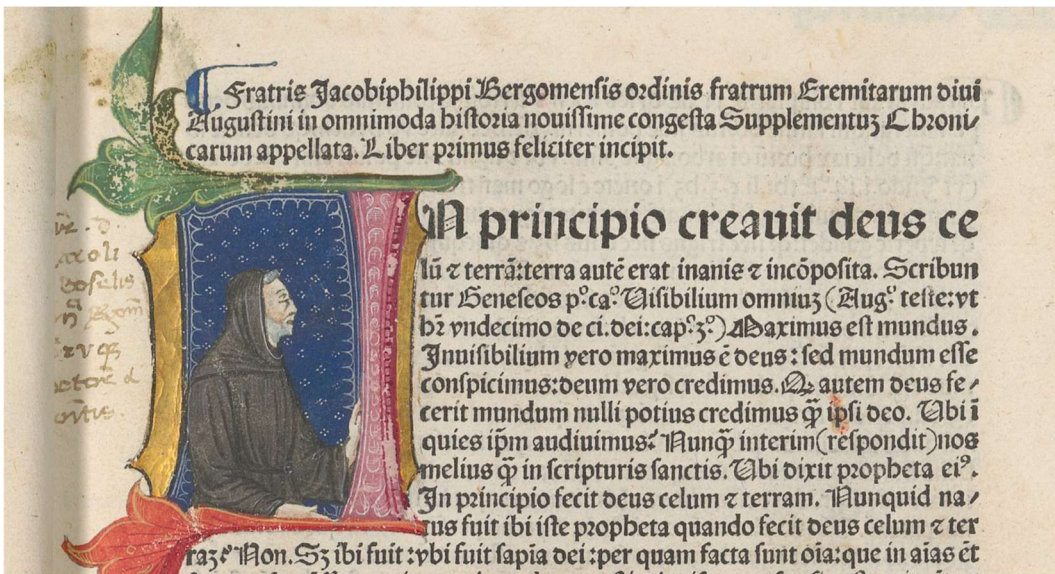 Fratris Jacobiphilippi Bergomensis ordinis fratrum Eremitarum diui
Augustini in omnimoda historia nouissime congesta Supplementuʒ Chroni⸗
carum appellata. Liber primus feliciter incipit.
IN principio creauit deus ce
lū ⁊ terrā:terra autē erat inanis ⁊ incōposita. Scribun
tur Geneseos p.ºca.º Uisibilium omniuʒ (Aug.º teste:vt
hr̄ vndecimo de ci.dei:cap.º3.º) Maximus est mundus.
Inuisibilium vero maximus ē deus: sed mundum esse
conspicimus:deum vero credimus. Qꝫ autem deus fe⸗
cerit mundum nulli potius credimus qꝫ̄ ipsi deo. Ubi ī
quies ip̄m audiuimus? Nunqꝫ̄ interim (respondit) nos
melius qꝫ̄ in scripturis sanctis. Ubi dixit propheta eiꝰ.
In principio fecit deus celum ⁊ terram. Nunquid na⸗
tus fuit ibi iste propheta quando fecit deus celum ⁊ ter
raʒ? Non. Sʒ ibi fuit:vbi fuit sapīa dei:per quam facta sunt oīa:que in aīas ēt